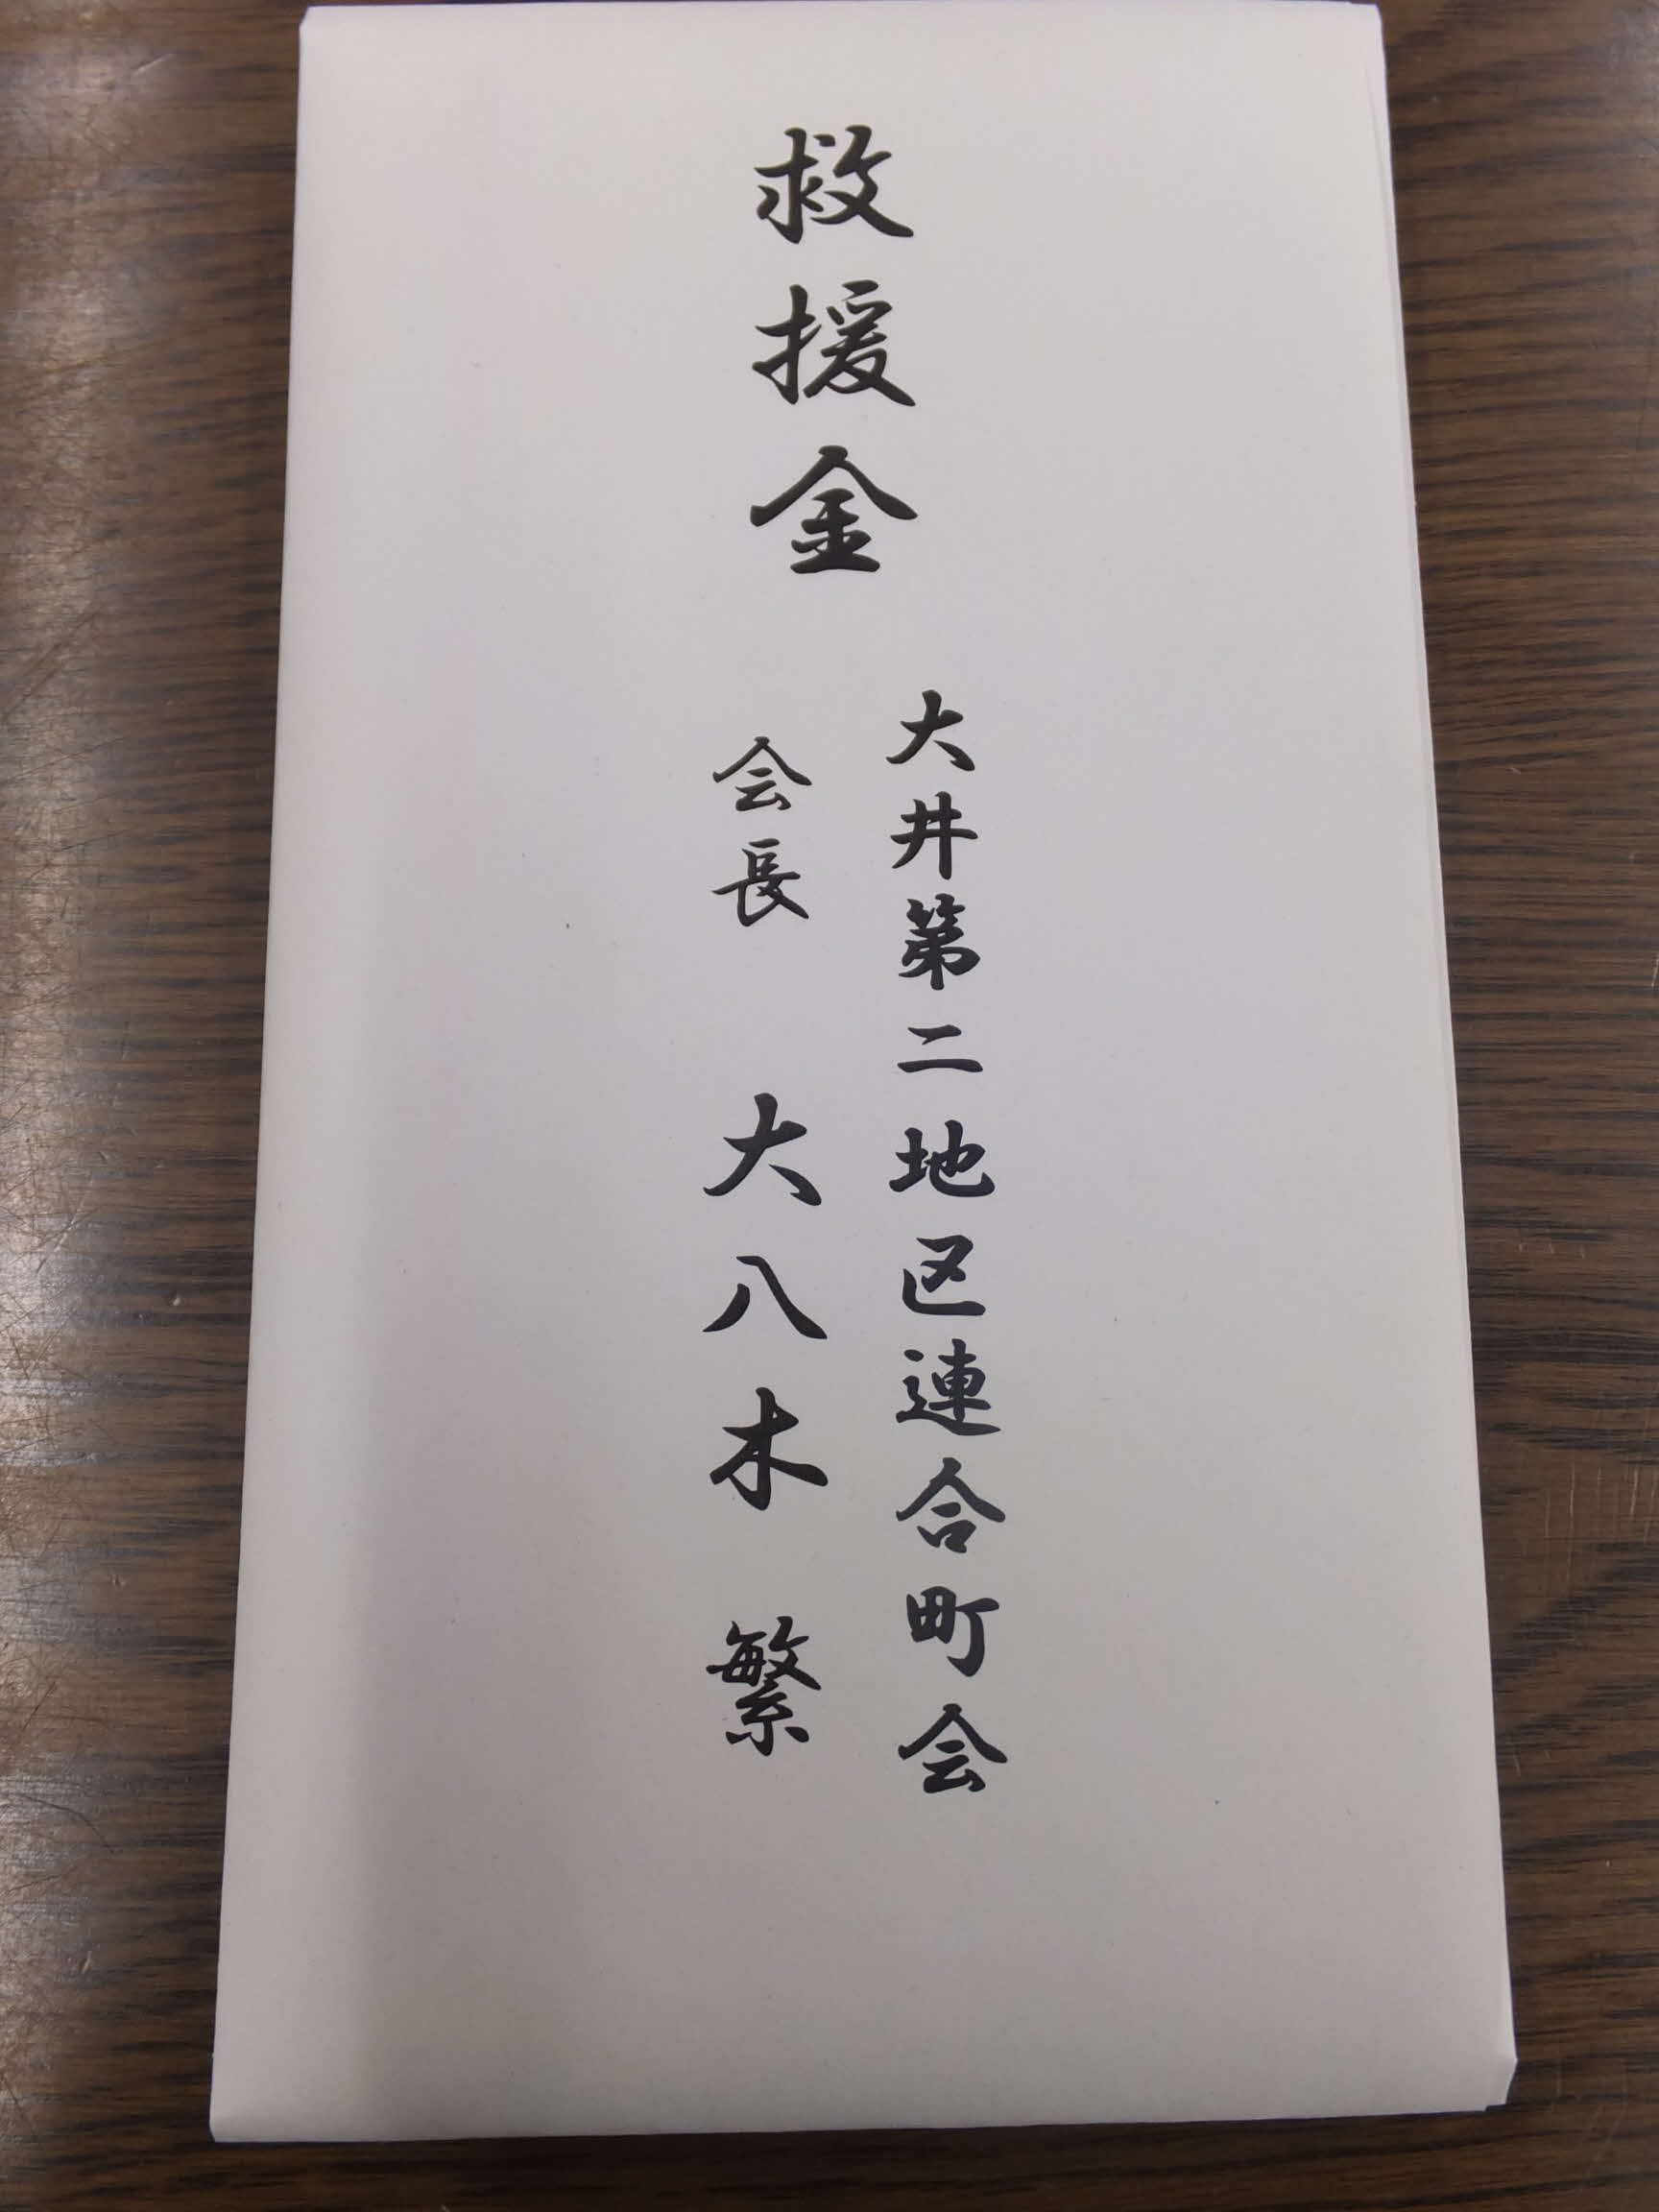 救援金
大井第二地区連合町会
会長 大八木 繁